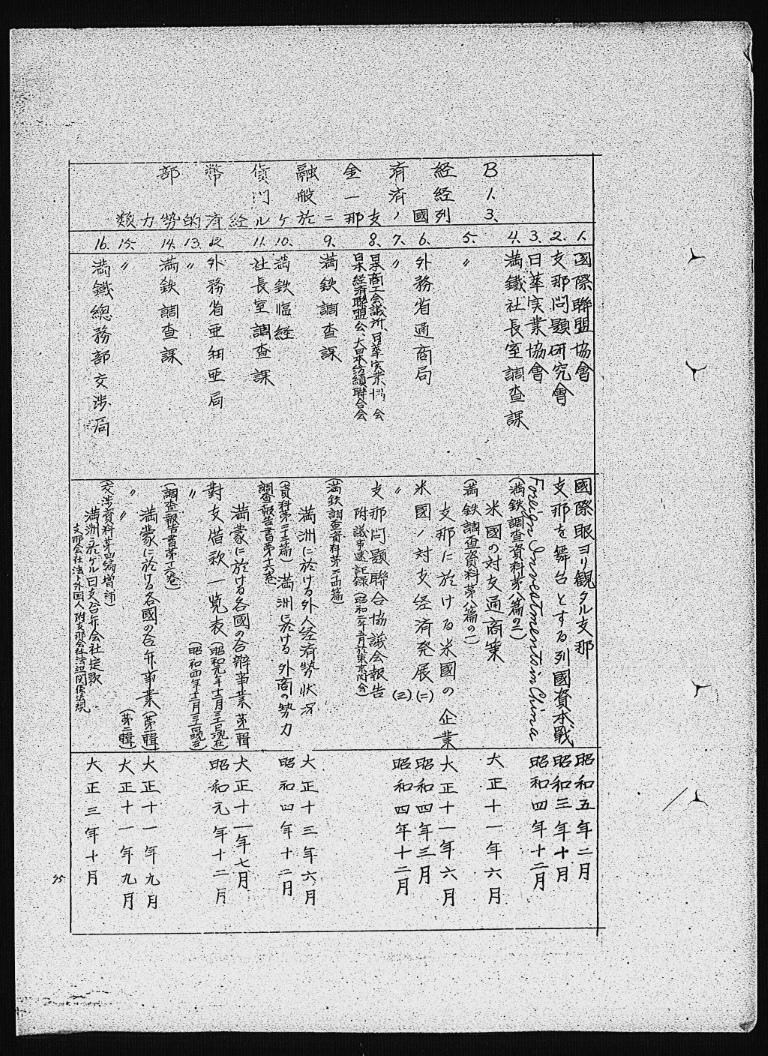 B 経済金融貨幣部
1. 経済一般門
3. 列國ノ支那ニ於ケル経済的勢力類
1. 國際聯盟協會 國際眼ヨリ観タル支那 昭和五年二月
2. 支那問題研究會 支那を舞台とする列國資本戦 昭和三年十月
3. 日華実業協會 Foreign Investment in China 昭和四年十二月
4. 満鐵社長室調査課 (満鉄調査資料第八篇の二)
米國の対支通商策 大正十一年六月
5. 〃 (満鉄調査資料第八篇の一)
支那に於ける米國の企業 大正十一年六月
6. 外務省通商局 米國ノ対支経済発展(二) 昭和四年三月
7. 〃 〃 (三) 昭和四年十二月
8. 日本商工会議所 日華実業協会
日本経済聯盟会 大日本紡績聯合会
支那問題聯合協議会報告
附議事速記録
9. 満鉄調査課
満洲に於ける外人経済勢状況 大正十三年六月
10. 満鉄臨経
満洲に於ける外商の勢力 昭和四年十二月
11. 社長室調査課
満蒙に於ける各國の合辦事業 第一輯 大正十一年七月
12. 外務省亜細亜局 對支借款一覧表 (昭和元年十二月三一日現在) 昭和元年十二月
13. 〃 〃 (昭和四年十二月三一日現在)
14. 満鉄調査課
満蒙に於ける各國の合弁事業(第一輯) 大正十一年九月
15. 〃 〃 (第二輯) 大正十一年九月
16. 満鐵總務部交渉局 (交渉資料第四編増補)
満洲ニ於ケル日支合弁会社定款 大正三年十月
95